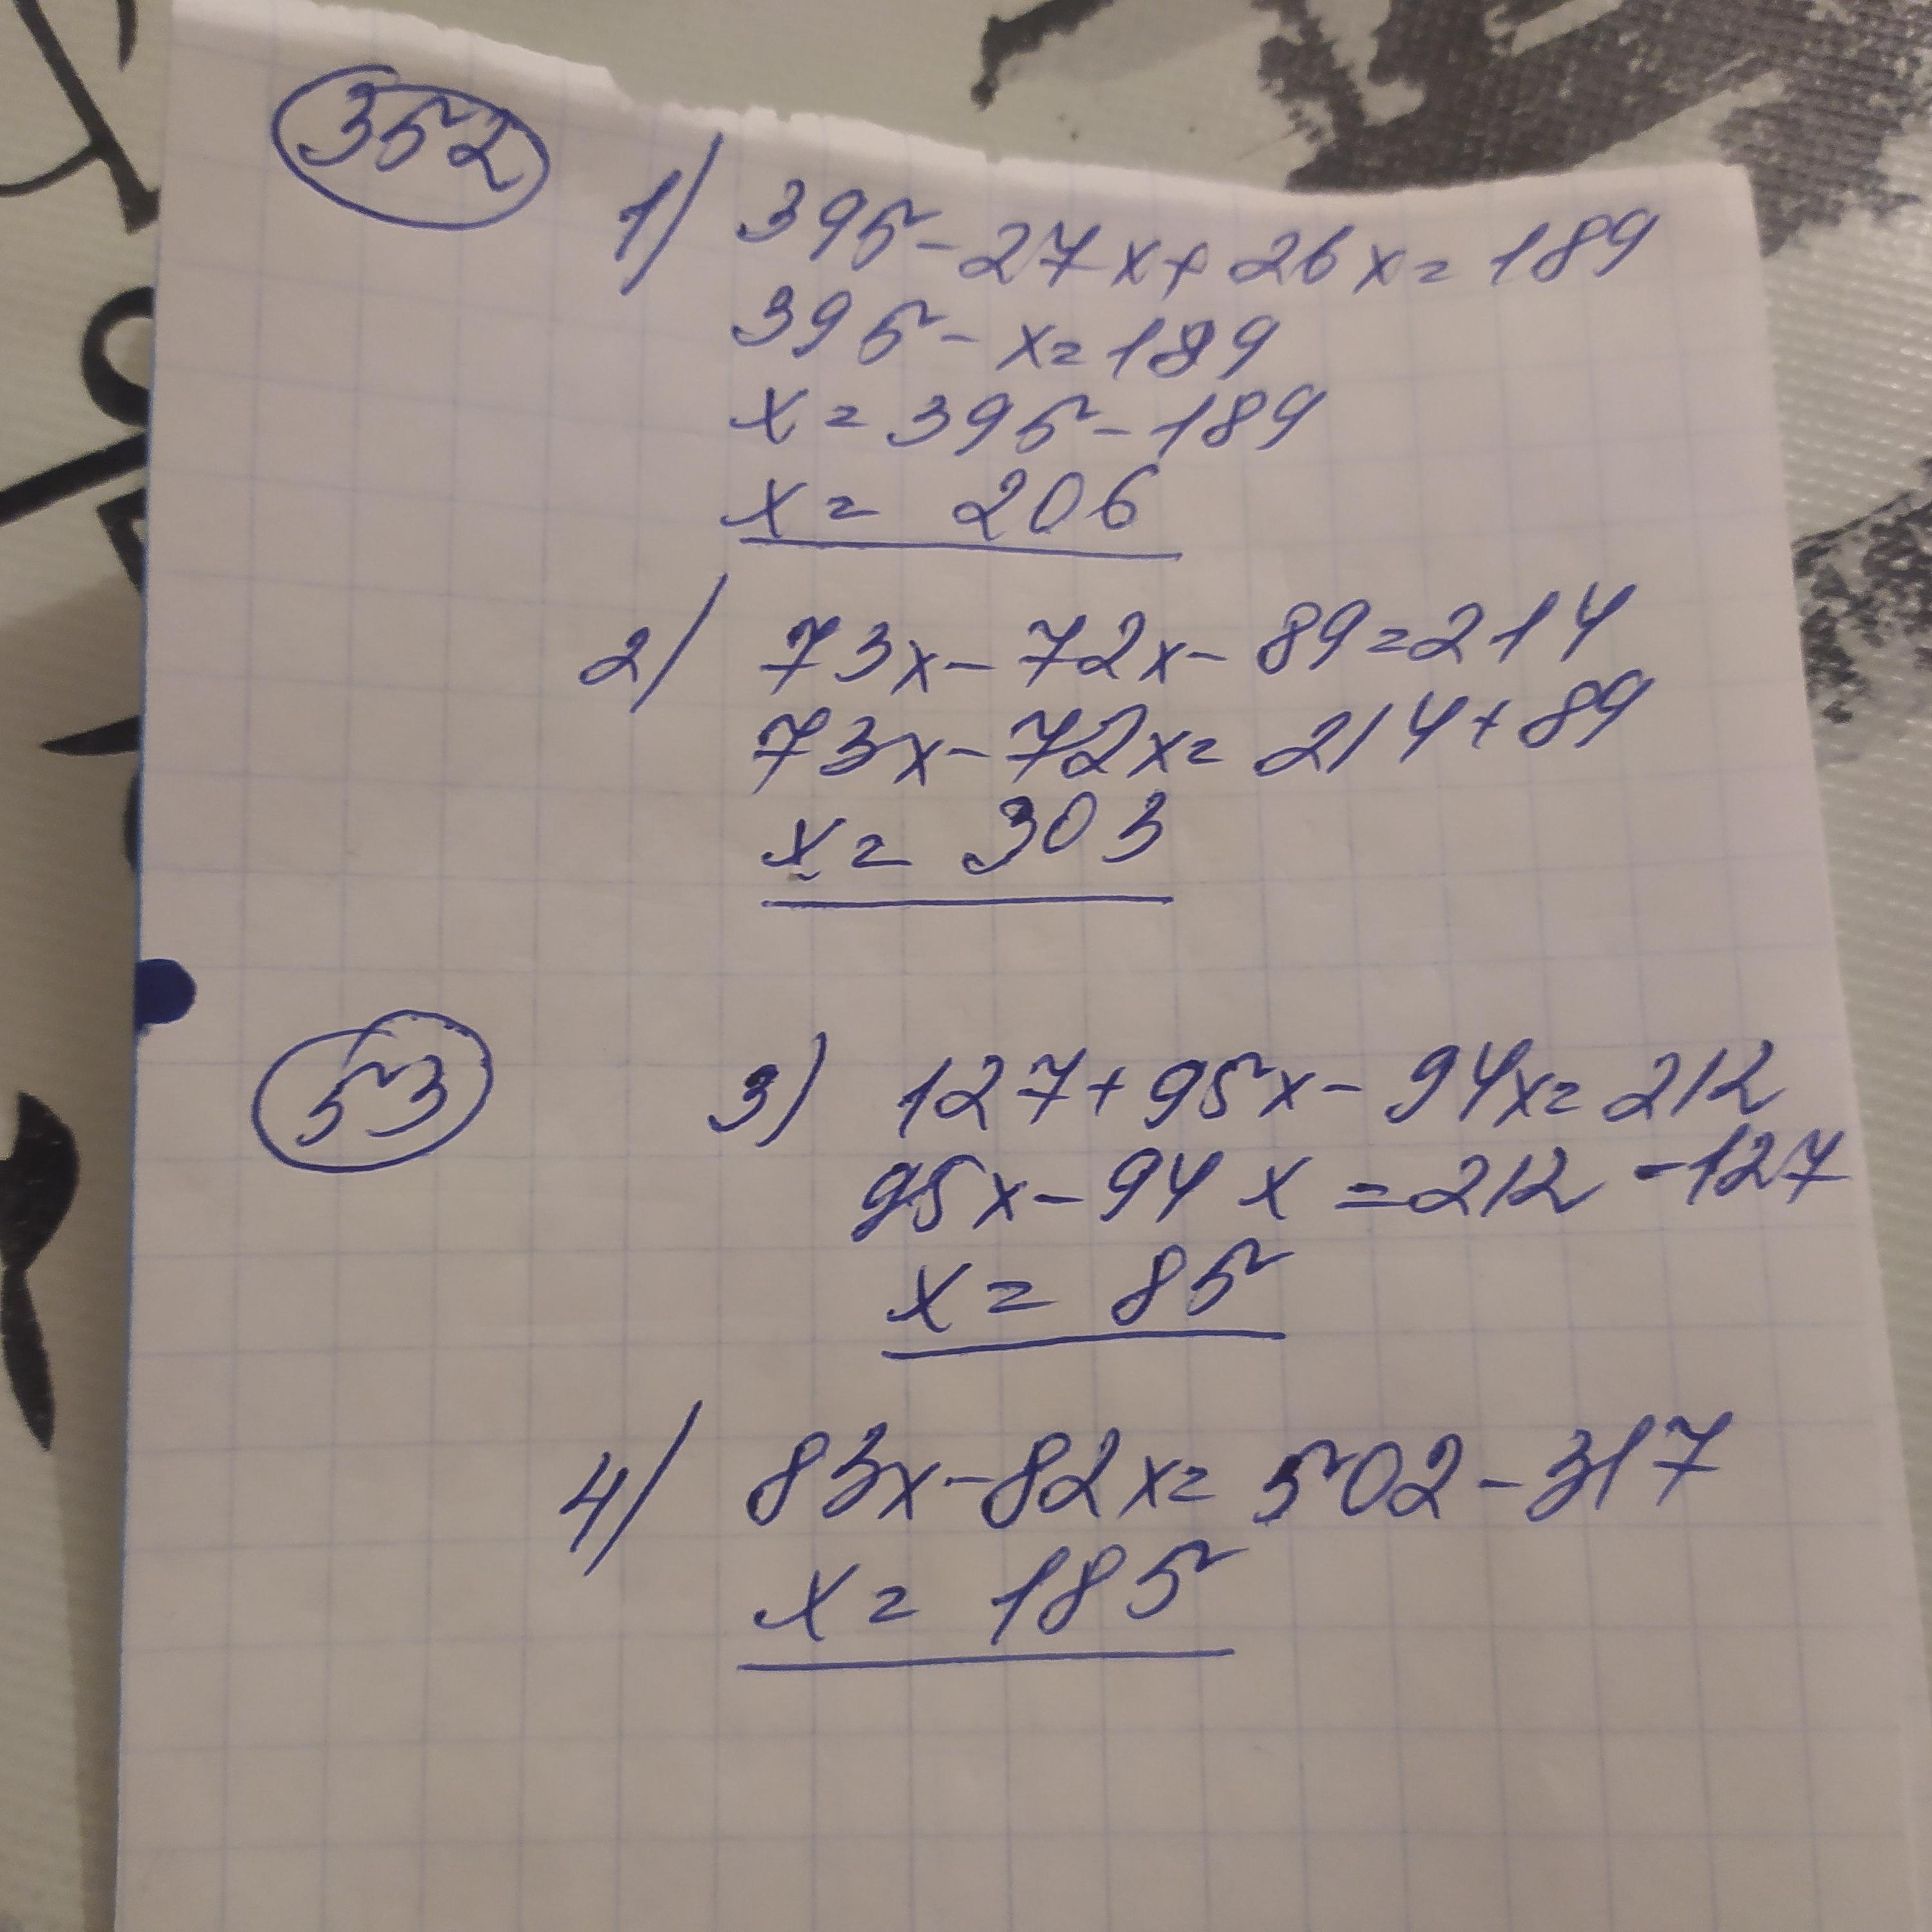 352
1) 395 - 27x + 26x = 189
395 - x = 189
x = 395 - 189
x = 206
2) 73x - 72x - 89 = 214
73x - 72x = 214 + 89
x = 303
53
3) 127 + 95x - 94x = 212
95x - 94x = 212 - 127
x = 85
4) 83x - 82x = 502 - 317
x = 185